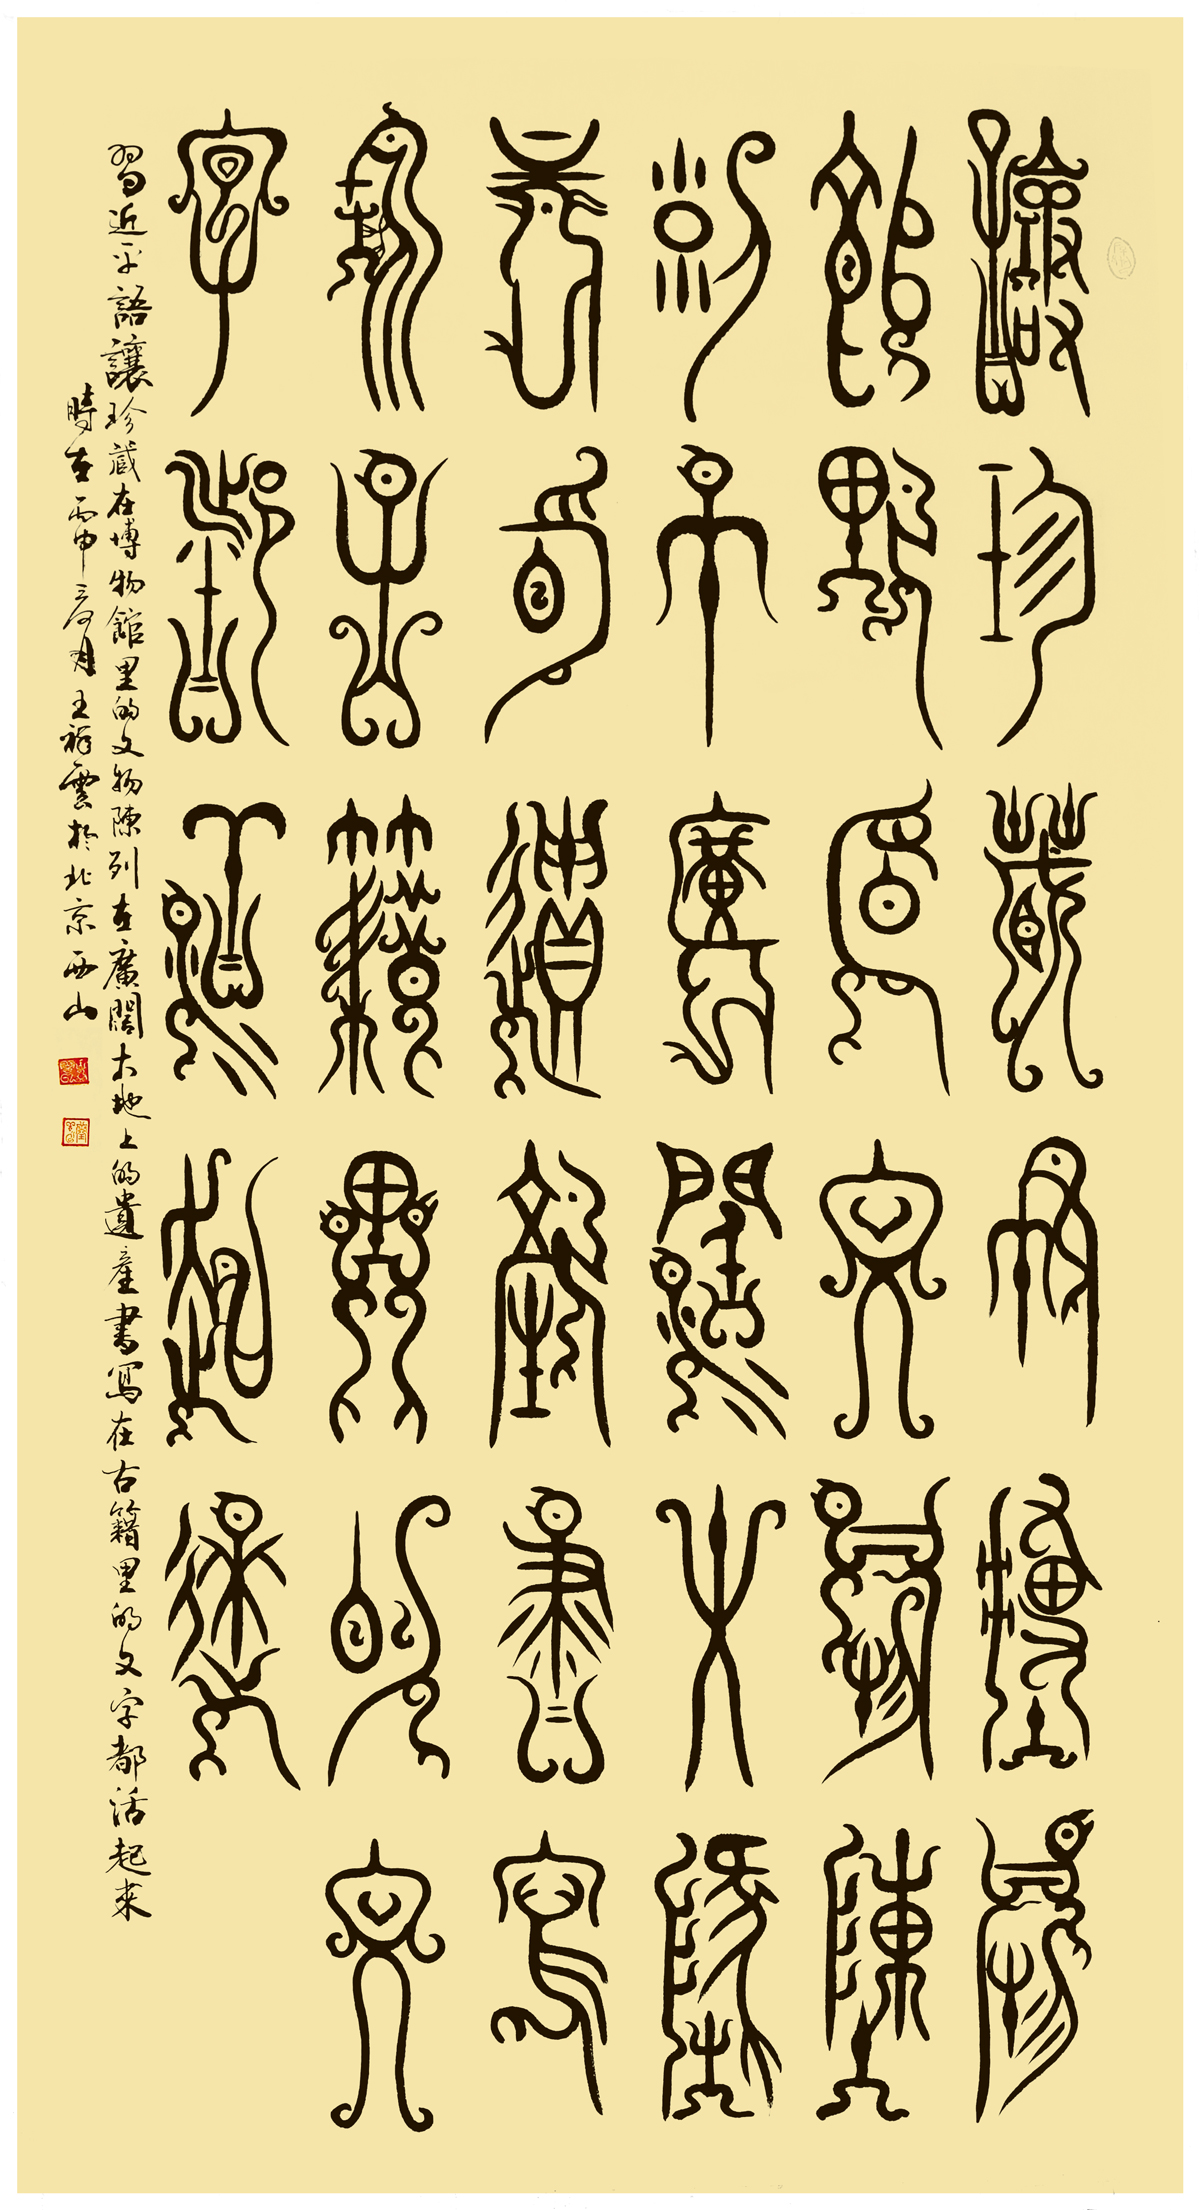 讓珍藏在博物
館里的文物陳
列在廣闊大地
上的遺產書寫
在古籍里的文
字都活起來
習近平語讓珍藏在博物館里的文物陳列在廣闊大地上的遺產書寫在古籍里的文字都活起來
時在丙申月王祥雲於北京西山